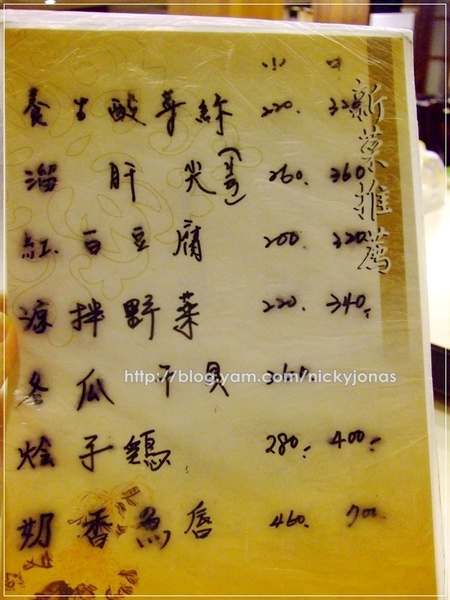 小 中
養生酸菜絲 220. 320
溜肝尖 260. 360
紅白豆腐 200. 320.
涼拌野菜 220. 340.
冬瓜干貝 360.
燴子鷄 280. 400.
奶香魚唇 460. 700.
新菜推薦
http://blog.yam.com/nickyjonas